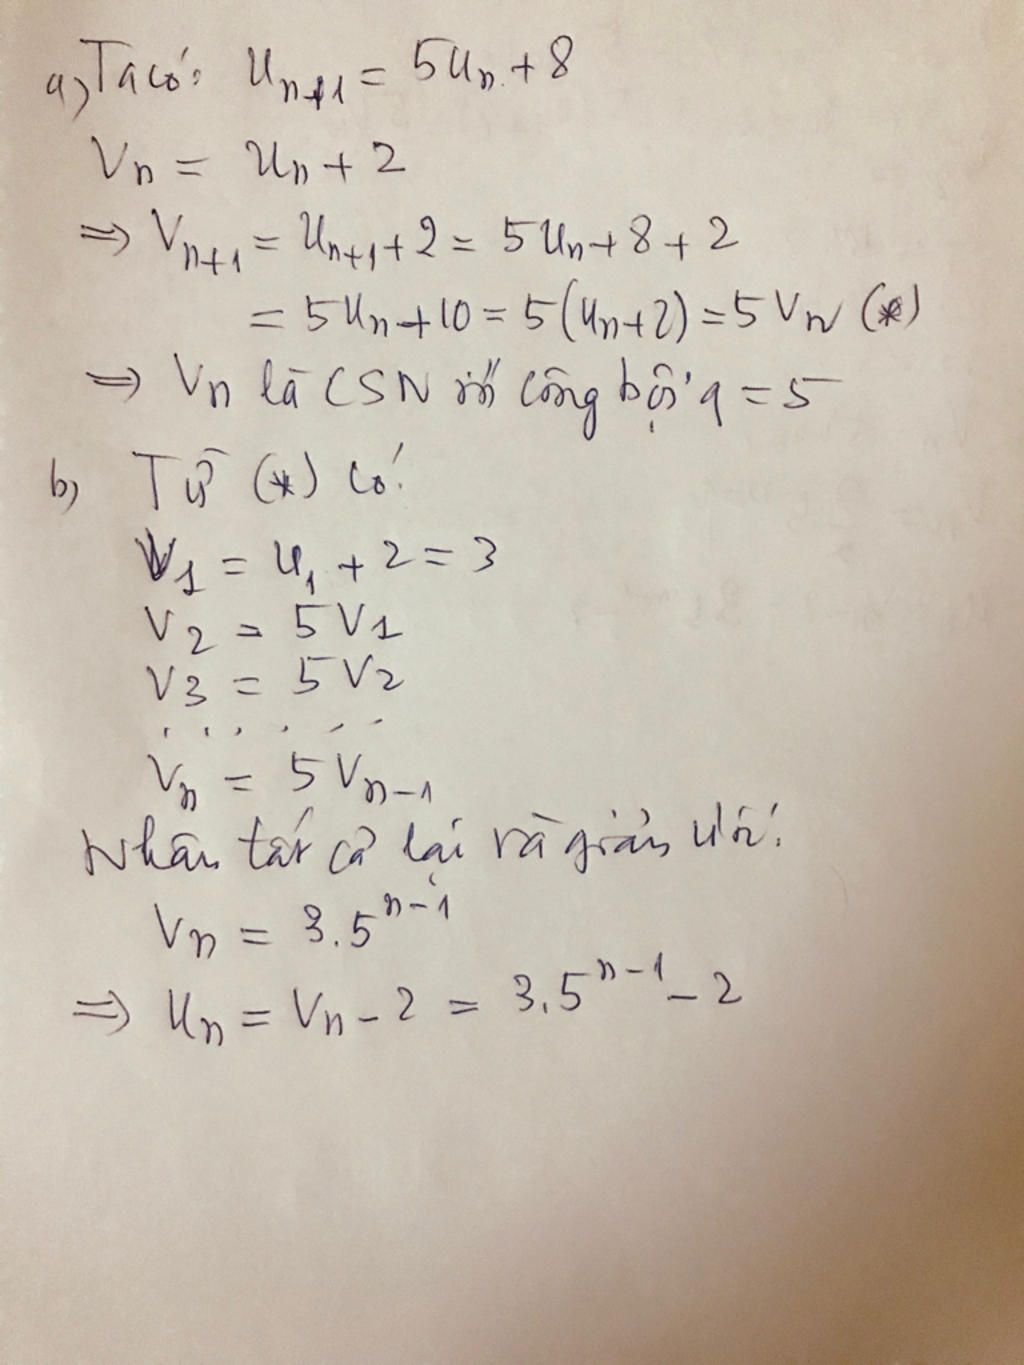 a) Ta có: Uₙ₊₁ = 5Uₙ + 8
Vₙ = Uₙ + 2
⇒ Vₙ₊₁ = Uₙ₊₁ + 2 = 5Uₙ + 8 + 2
= 5Uₙ + 10 = 5(Uₙ + 2) = 5Vₙ (*)
⇒ Vₙ là CSN với công bội q = 5
b) Từ (*) có:
V₁ = U₁ + 2 = 3
V₂ = 5V₁
V₃ = 5V₂
. . . . . .
Vₙ = 5Vₙ₋₁
Nhân tất cả lại và giản ước:
Vₙ = 3.5ⁿ⁻¹
⇒ Uₙ = Vₙ - 2 = 3.5ⁿ⁻¹ - 2